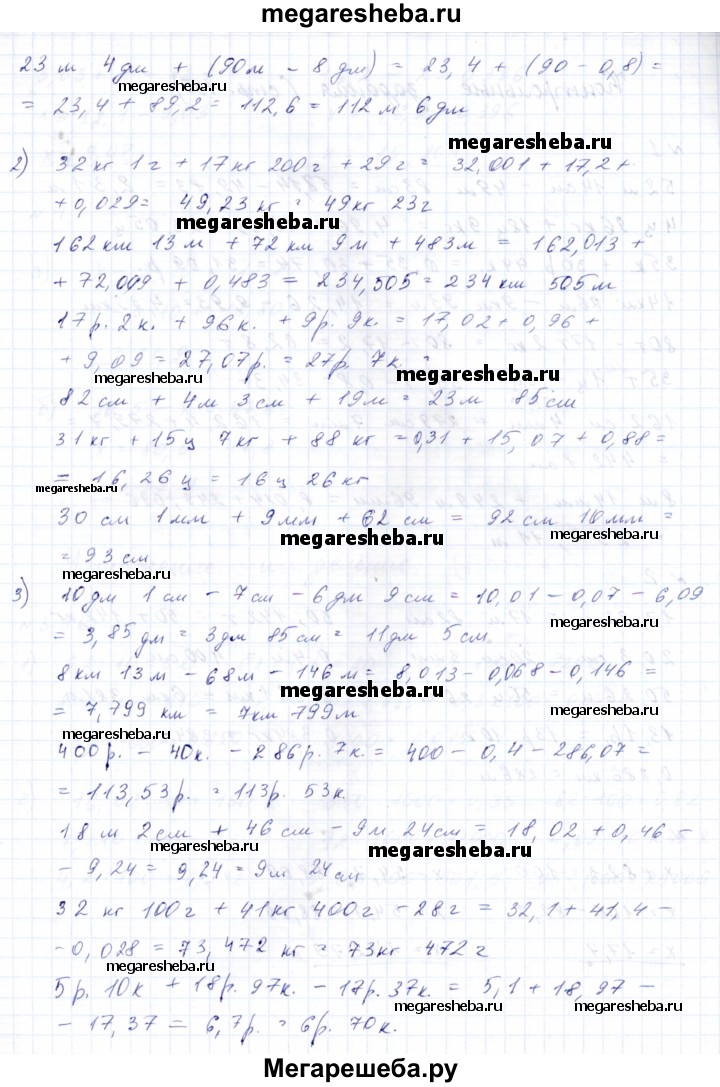 megaresheba.ru
23 м 4 дм + (90 м - 8 дм) = 23,4 + (90 - 0,8) =
megaresheba.ru
megaresheba.ru
= 23,4 + 89,2 = 112,6 = 112 м 6 дм
megaresheba.ru
2) 32 кг 1 г + 17 кг 200 г + 29 г = 32,001 + 17,2 +
+ 0,029 = 49,23 кг = 49 кг 23 г
megaresheba.ru
162 км 13 м + 72 км 9 м + 483 м = 162,013 +
+ 72,009 + 0,483 = 234,505 = 234 км 505 м
17 р. 2 к. + 96 к. + 9 р. 9 к. = 17,02 + 0,96 +
+ 9,09 = 27,07 р. = 27 р. 7 к.
megaresheba.ru
megaresheba.ru
82 см + 4 м 3 см + 19 м = 23 м 85 см
31 кг + 15 ц 7 кг + 88 кг = 0,31 + 15,07 + 0,88 =
= 16,26 ц = 16 ц 26 кг
megaresheba.ru
30 см 1 мм + 9 мм + 62 см = 92 см 10 мм =
megaresheba.ru
megaresheba.ru
= 93 см
megaresheba.ru
3) 10 дм 1 см - 7 см - 6 дм 9 см = 10,01 - 0,07 - 6,09
= 3,85 дм = 3 дм 85 см = 11 дм 5 см
8 км 13 м - 68 м - 146 м = 8,013 - 0,068 - 0,146 =
megaresheba.ru
= 7,799 км = 7 км 799 м
megaresheba.ru
megaresheba.ru
400 р. - 40 к. - 286 р. 7 к. = 400 - 0,4 - 286,07 =
= 113,53 р. = 113 р. 53 к.
18 м 2 см + 46 см - 9 м 24 см = 18,02 + 0,46 -
megaresheba.ru
megaresheba.ru
- 9,24 = 9,24 = 9 м 24 см
32 кг 100 г + 41 кг 400 г - 28 г = 32,1 + 41,4 -
- 0,028 = 73,472 кг = 73 кг 472 г
megaresheba.ru
5 р. 10 к + 18 р. 97 к. - 17 р. 37 к. = 5,1 + 18,97 -
megaresheba.ru
- 17,37 = 6,7 р. = 6 р. 70 к.
Мегарешеба.ру